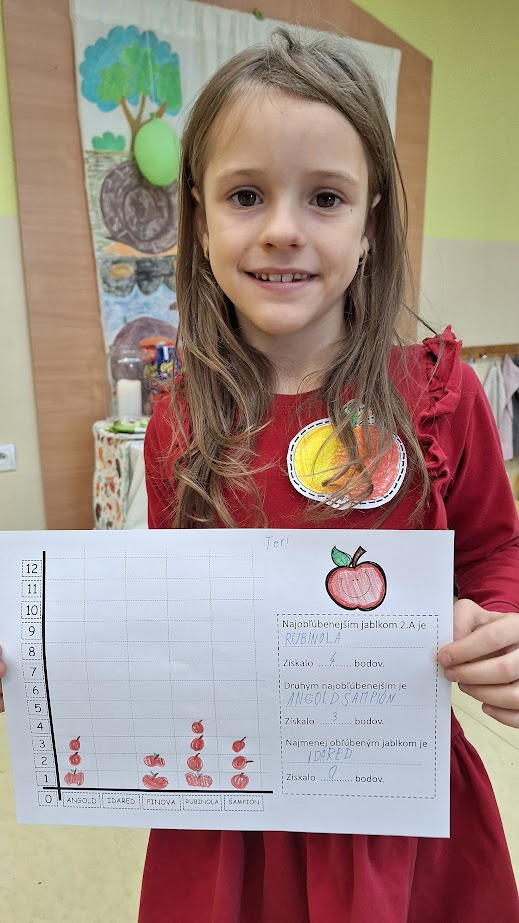 Teri
12
11
10
9
8
7
6
5
4
3
2
1
0
ANGOLD IDARED PINOVA RUBINOLA ŠAMPIÓN
Najobľúbenejším jablkom 2.A je
RUBINOLA
Získalo ....4...... bodov.
Druhým najobľúbenejším je
ANGOLD, ŠAMPIÓN
Získalo ....3...... bodov.
Najmenej obľúbeným jablkom je
IDARED
Získalo ....0...... bodov.